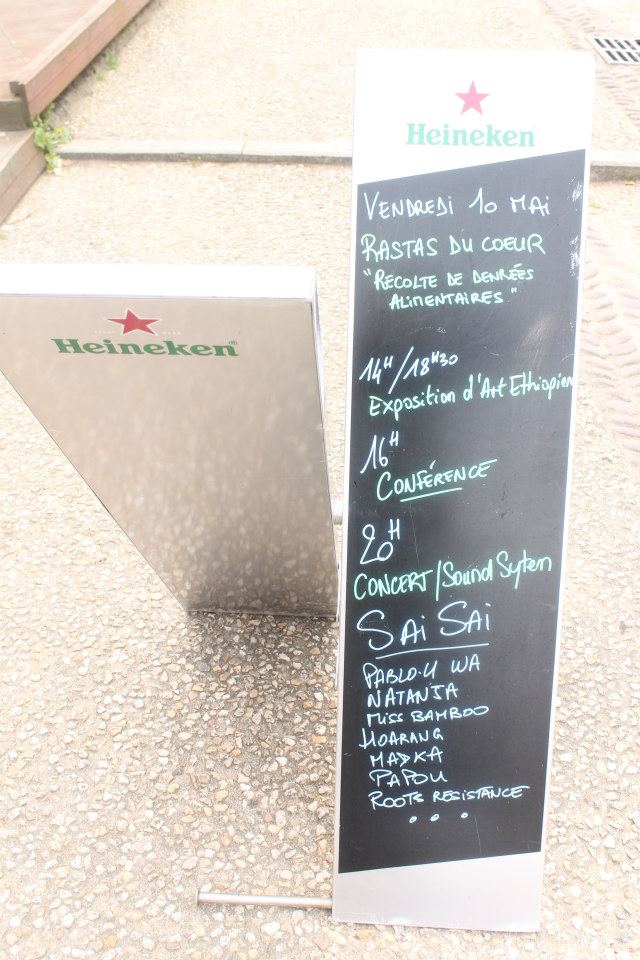 Heineken
VENDREDI 10 MAI
RASTAS DU COEUR
"RÉCOLTE DE DENRÉES
ALIMENTAIRES"
14H/18H30
Exposition d'Art Ethiopien
16H
CONFÉRENCE
20H
CONCERT/Sound Sytem
SAi SAi
PABLO-U WA
NATANJA
MISS BAMBOO
HOARANG
MADKA
PAPOU
ROOTS RESISTANCE
...
Heineken®